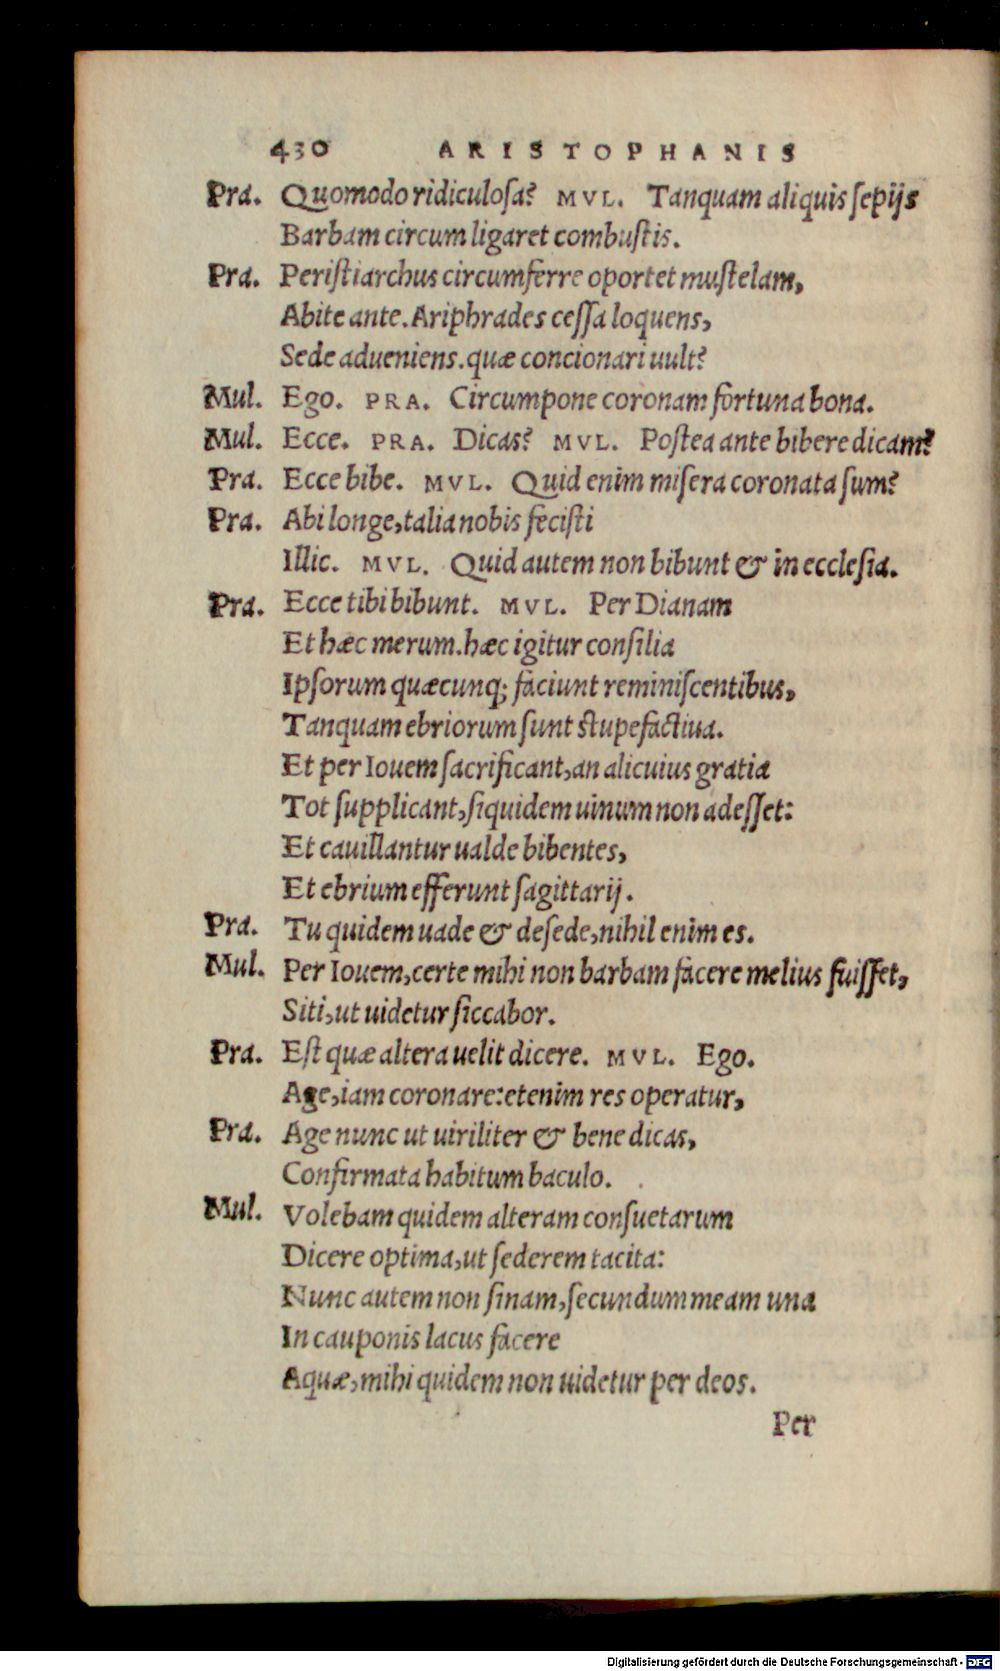 430 ARISTOPHANIS
Pra. Quomodo ridiculosa? MVL. Tanquam aliquis sepijs
Barbam circum ligaret combustis.
Pra. Peristiarchus circumferre oportet mustelam,
Abite ante. Ariphrades cessa loquens,
Sede adueniens. quæ concionari uult?
Mul. Ego. PRA. Circumpone coronam fortuna bona.
Mul. Ecce. PRA. Dicas? MVL. Postea ante bibere dicam?
Pra. Ecce bibe. MVL. Quid enim misera coronata sum?
Pra. Abi longe, talia nobis fecisti
Illic. MVL. Quid autem non bibunt & in ecclesia.
Pra. Ecce tibi bibunt. MVL. Per Dianam
Et hæc merum. hæc igitur consilia
Ipsorum quæcunq; faciunt reminiscentibus,
Tanquam ebriorum sunt stupefactiua.
Et per Iouem sacrificant, an alicuius gratia
Tot supplicant, siquidem uinum non adesset:
Et cauillantur ualde bibentes,
Et ebrium efferunt sagittarij.
Pra. Tu quidem uade & desede, nihil enim es.
Mul. Per Iouem, certe mihi non barbam facere melius fuisset,
Siti, ut uidetur siccabor.
Pra. Est quæ altera uelit dicere. MVL. Ego.
Age, iam coronare: etenim res operatur,
Pra. Age nunc ut uiriliter & bene dicas,
Confirmata habitum baculo.
Mul. Volebam quidem alteram consuetarum
Dicere optima, ut sederem tacita:
Nunc autem non sinam, secundum meam una
In cauponis lacus facere
Aquæ, mihi quidem non uidetur per deos.
Per
Digitalisierung gefördert durch die Deutsche Forschungsgemeinschaft - DFG